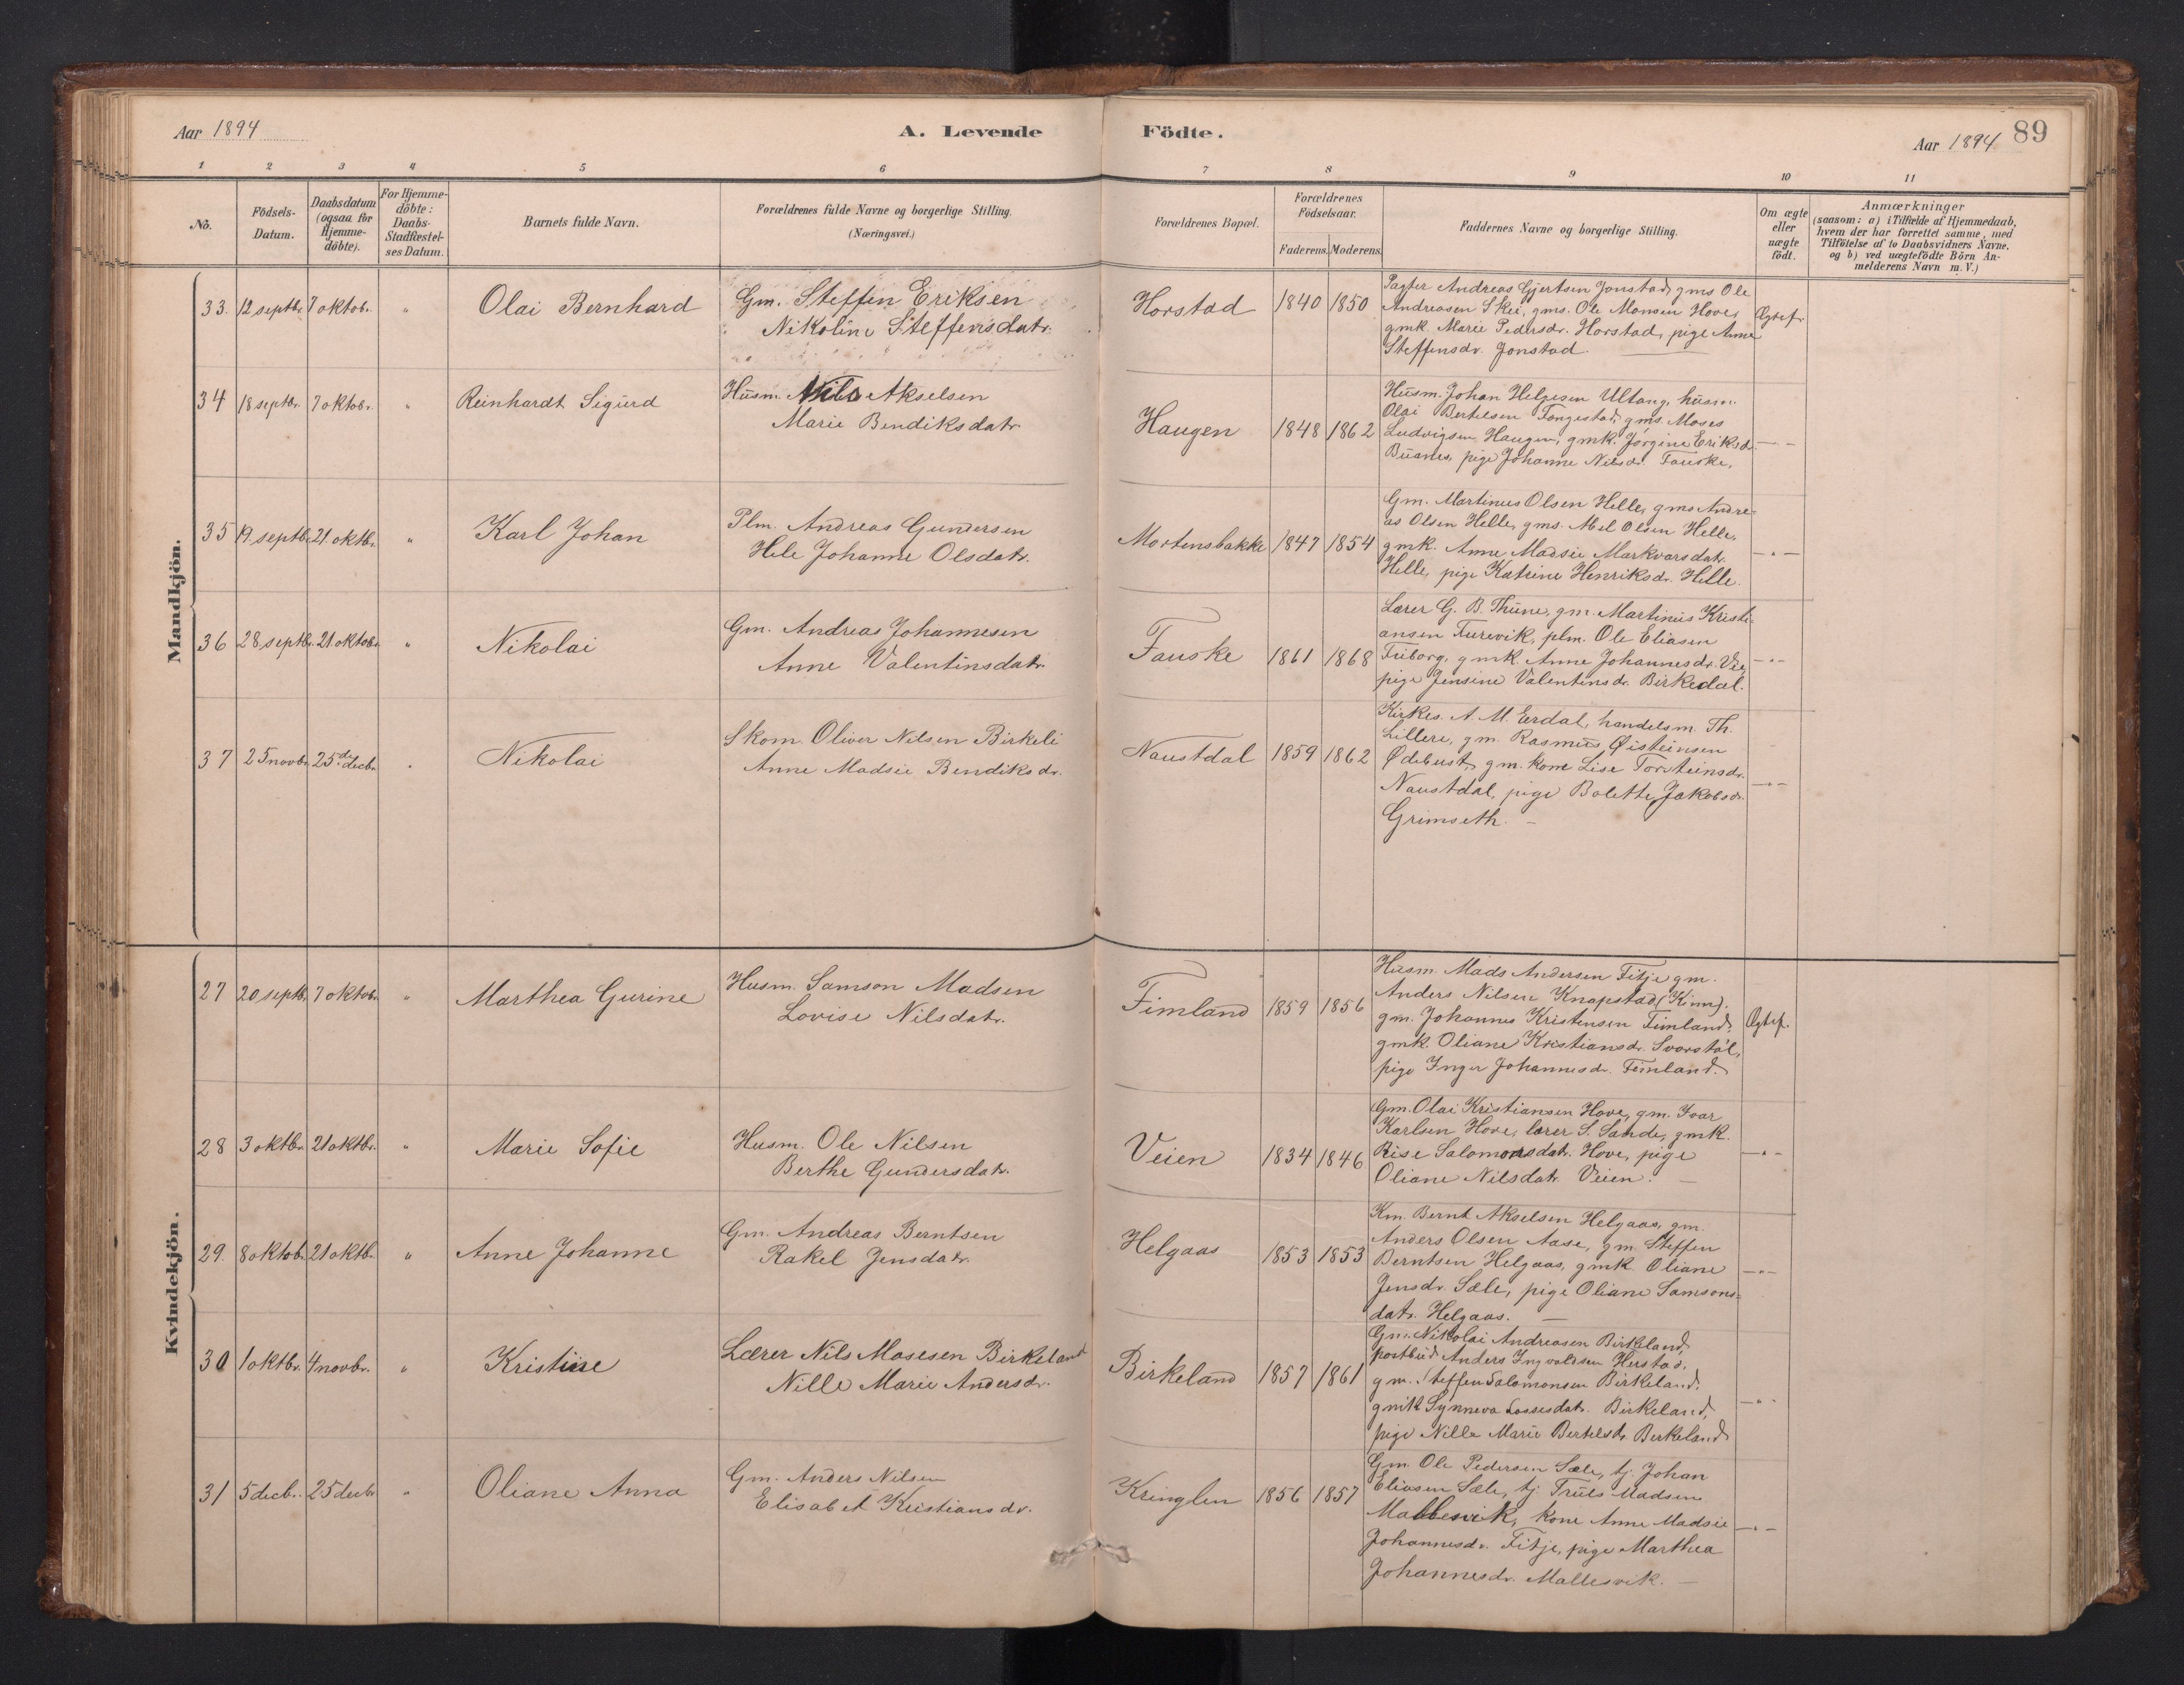 Aar 1894
A. Levende Födte.
Aar 1894 89
1 2 3 4 5 6 7 8 9 10 11
No.
Födsels-Datum.
Daabsdatum (ogsaa for Hjemme-döbte).
For Hjemme-döbte: Daabs-Stadfæstel-ses Datum.
Barnets fulde Navn.
Forældrenes fulde Navne og borgerlige Stilling. (Næringsvei.)
Forældrenes Bopæl.
Forældrenes Födselsaar.
Faderens. Moderens.
Faddernes Navne og borgerlige Stilling.
Om ægte eller uægte födt.
Anmærkninger
(saasom: a) i Tilfælde af Hjemmedaab,
hvem der har forrettet samme, med
Tilföielse af to Daabsvidners Navne.
og b) ved uægtefödte Börn An-
melderens Navn m.V.)
Mandkjön.
33. 12 septbr. 7 oktob. " Olai Bernhard
Gm. Steffen Eriksen
Nikoline Steffensdatr.
Horstad 1840 1850
Pagter Andreas Gjertsen Jonstad, gms Ole
Andreasen Skei, gms. Ole Monsen Hove,
gmk. Marie Pedersdr. Horstad, pige Anne
Steffensdr. Jonstad.
Ægtef.
34 18 septbr. 7 oktob. " Reinhardt Sigurd
Husm. Nils Akselsen
Marie Bendiksdatr
Haugen 1848 1862
Husm. Johan Helgesen Ultang, husm.
Olai Bertelsen Fongestad, gms. Moses
Ludvigsen Haugen, gmk. Jørgine Eriksdr.
Buanes, pige Johanne Nilsdr. Fauske,
35 19 septbr. 21. oktbr. " Karl Johan
Plm. Andreas Gundersen
Hele Johanne Olsdatr.
Mortensbakke 1847 1854
Gm. Martinus Olsen Helle, gms Andre-
as Olsen Helle, gms. Abel Olsen Helle,
gmk. Anne Madsie Markvarsdatr.
Helle, pige Katrine Henriksdr. Helle.
36 28 septbr. 21 oktobr. " Nikolai
Gm. Andreas Johannesen
Anne Valentinsdatr
Fauske 1861 1868
Lærer G. B. Thune, gm. Martinus Kristi-
ansen Furevik, plm. Ole Eliasen
Friborg, gmk. Anne Johannesdr. Vie,
pige Jensine Valentinsdr. Birkedal.
37 25 novbr. 25de decbr. " Nikolai
Skom. Oliver Nilsen Birkeli
Anne Madsie Bendiksdr.
Naustdal 1859 1862
Kirkes. A. M. Erdal, handelsm. Th.
Lillere, gm. Rasmus Øisteinsen
Ødebust, gm. kone Lise Torsteinsdr.
Naustdal, pige Bolette Jakobsdr.
Grimseth.
Kvindekjön.
27 20 septb. 7 oktob. " Marthea Gurine
Husm. Samson Madsen
Lovise Nilsdatr.
Fimland 1859 1856
Husm. Mads Andersen Fitje gm.
Anders Nilsen Knapstad (Kinn).
gm. Johannes Kristensen Fimland,
gmk. Oliane Kristiansdr. Svorstøl,
pige Inger Johannesdr. Fimland.
Ægtef.
28 3 oktbr. 21 oktbr. " Marie Sofie
Husm. Ole Nilsen
Berthe Gundersdatr.
Veien 1834 1846
Gm. Olai Kristiansen Hove, gm. Ivar
Karlsen Hove, lærer S. Sande, gmk.
Rise Salomonsdatr. Hove, pige
Oliane Nilsdatr. Veien.
29. 8 oktob. 21 oktb. " Anne Johanne
Gm. Andreas Berntsen
Rakel Jensdatr.
Helgaas 1853 1853
Km. Bernt Akselsen Helgaas, gm.
Anders Olsen Aase, gm. Steffen
Berntsen Helgaas, gmk. Oliane
Jensdr. Sæle, pige Oliane Samsons-
datr. Helgaas.
30 1 oktbr. 4 novbr. " Kristine
Lærer Nils Mosesen Birkeland
Nille Marie Andersdr.
Birkeland 1857 1861
Gm. Nikolai Andreasen Birkeland,
postbud Anders Ingvaldsen Herstad,
gm. Steffen Salomonsen Birkeland,
gmk Synneva Lassesdatr. Birkeland,
pige Nille Marie Bertelsdr. Birkeland
31 5 decb. 25 decbr " Oliane Anna
Gm. Anders Nilsen
Elisabet Kristiansdr.
Kringlen 1856 1857
Gm. Ole Pedersen Sæle, tj. Johan
Eliasen Sæle, tj. Truls Madsen
Mallesvik, kone Anne Madsie
Johannesdr. Fitje, pige Marthea
Johannesdr. Mallesvik.